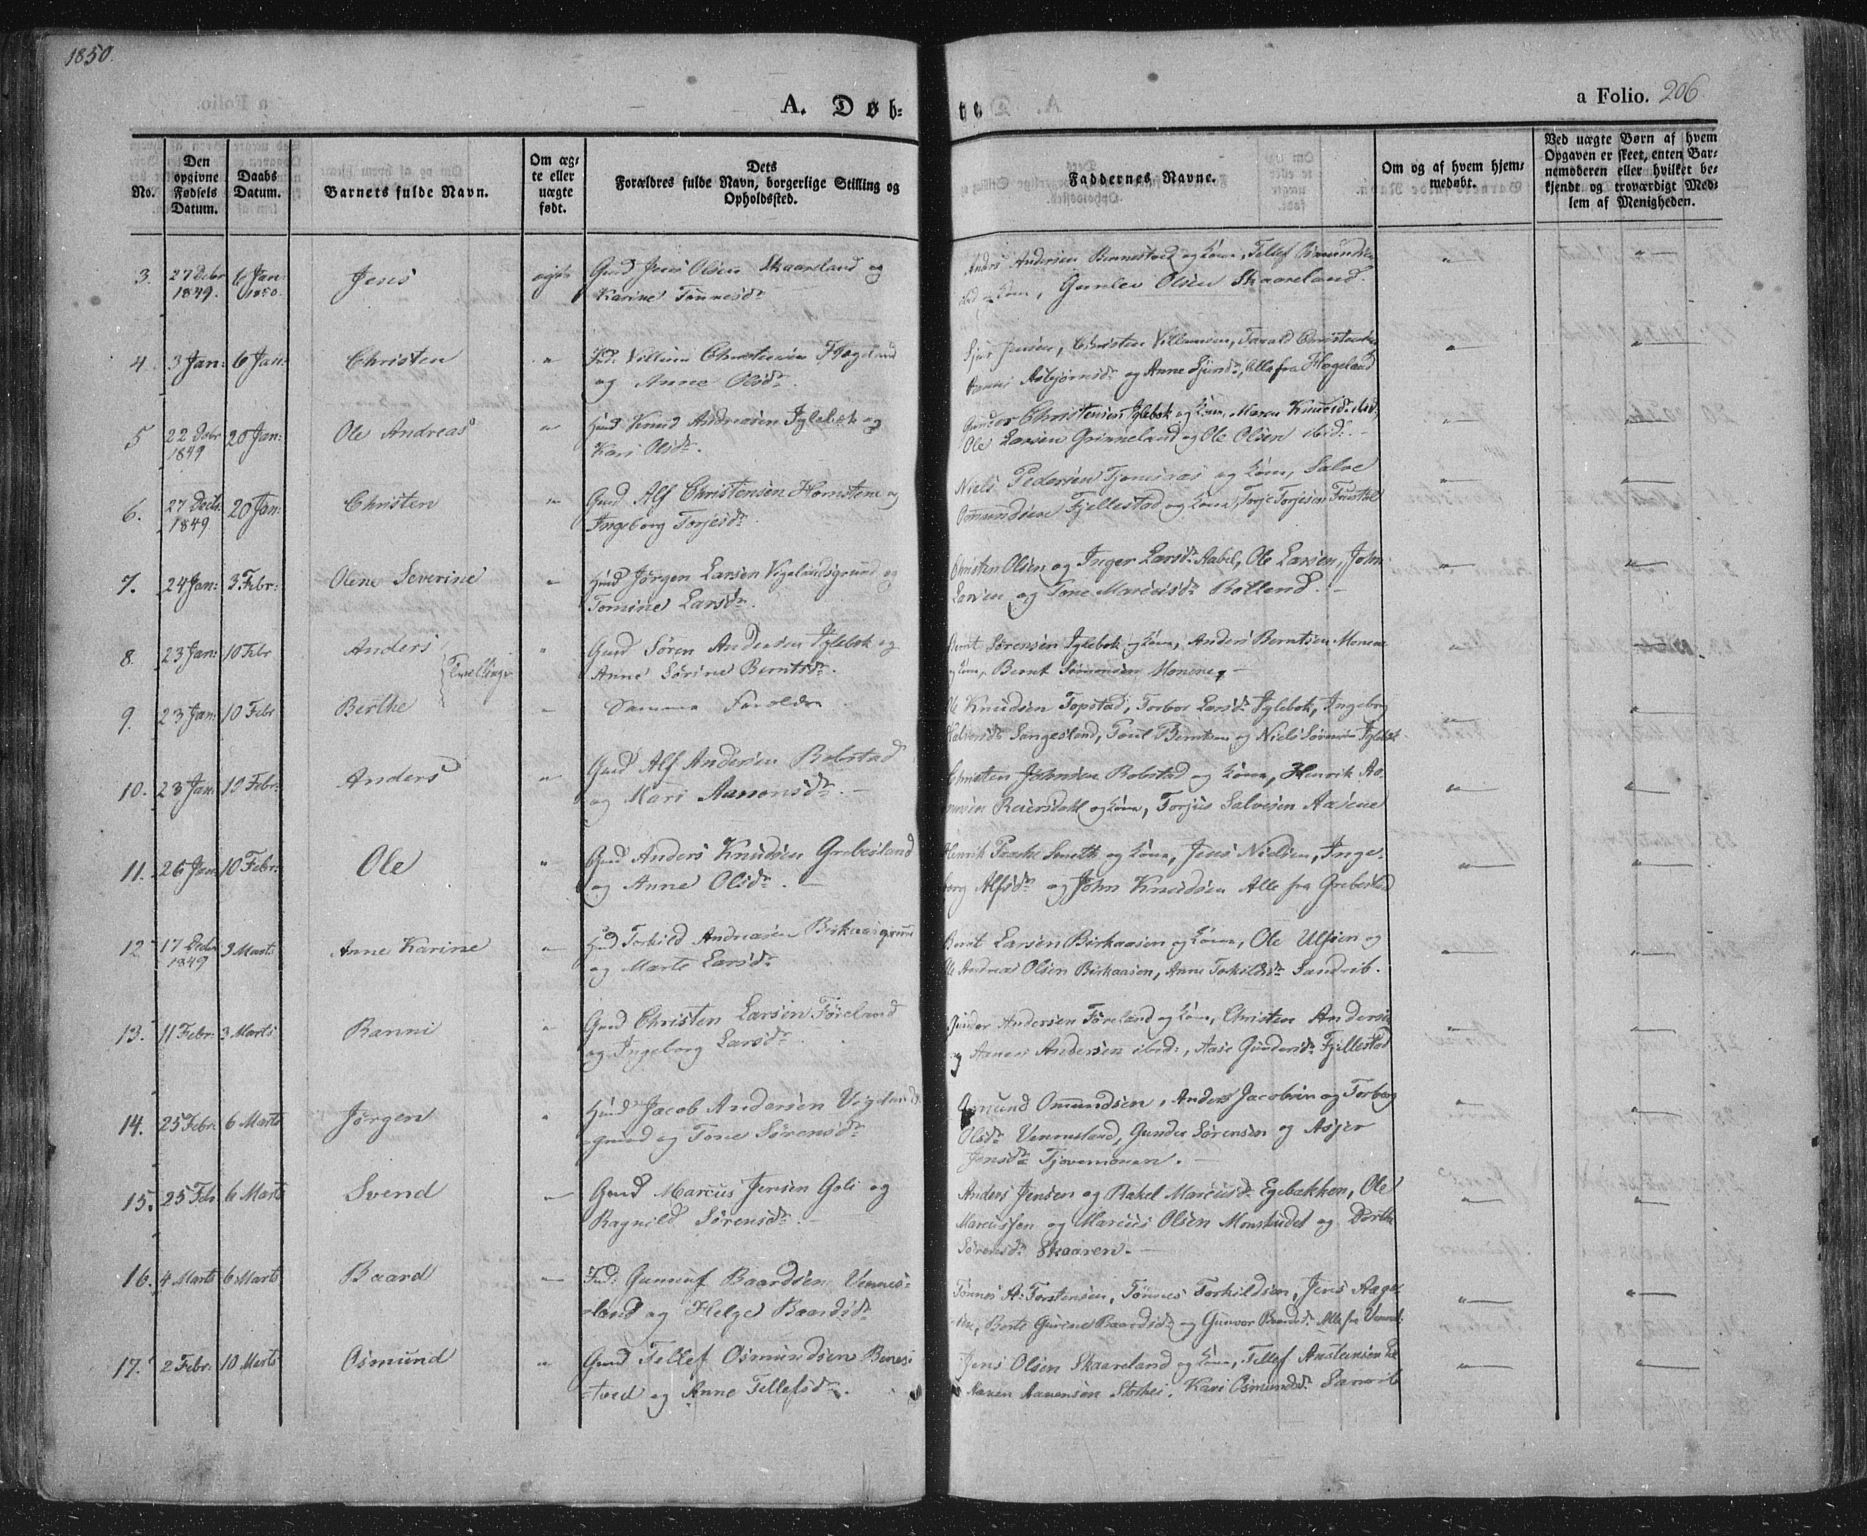 1850.
A. Døb-
te
a Folio. 206
No.
Den opgivne Fødsels Datum.
Daabs Datum.
Barnets fulde Navn.
Om ægte eller uægte født.
Dets Forældres fulde Navn, borgerlige Stilling og Opholdssted.
Faddernes Navne.
Om og af hvem hjemmedøbt.
Ved uægte Børn af hvem Opgaven er skeet, enten Barnemoderen eller hvilket bekjendt og troværdigt Medlem af Menigheden.
3. 27 Debr 1849. 6 Jan: 1850. Jens ægte Gmd Jens Olsen Skaareland og
Karine Tønnesdr
Anders Andersen Bennestved og Kone, Tellef
og Kone, Gunlev Olsen Skaareland.
4. 3 Jan: 6 Jan: Christen " Villum Christensen Hægeland
og Anne Olsdr.
Sjur Jensen, Christen Villumsen, Tarald Christensen
Asbjørnsdr og Anne Sjursdr, Alle fra Hægeland
5 22 Debr 1849 20 Jan: Ole Andreas " Huusmd Knud Andersen Iglebæk og
Kari Olsdr.
Gunder Christensen Iglebæk og Kone, Maren Knudsdr ibid,
Ole Larsen Grinneland og Ole Olsen ibid. -
6. 27 Decbr 1849 20 Jan: Christen " Gmd Alf Christensen Homstene og
Ingeborg Torjesdr
Niels Pedersen Tjomsaas og Kone, Salve
Ommundsen Fjellestad og Kone, Torje Torjesen
7. 24 Jan: 3 Febr: Olene Severine " Hmd Jørgen Larsen Vigelandsgrund og
Tomine Larsdr.
Christen Olsen og Inger Larsdr Aabel, Ole Larsen, John
Larsen og Tone Marcusdr Rolland. -
8. 23 Jan: 10 Febr Anders } Tvillinger " Gmd Søren Andersen Iglebæk og
Anne Sørine Berntsdr.
Bernt Sørensen Iglebæk og Kone, Anders Berntsen Monene
og Kone, Bernt Sørensen Monene, -
9. 23 Jan: 10 Febr Berthe " Samme Forældre
Ole Knudsen Topstad, Torbor Larsdr Iglebæk, Ingeborg
Halvorsdr Langesland, Poul Berntsen og Niels Sørensen Iglebæk
10. 23 Jan: 10 Febr: Anders " Gmd Alf Andersen Robstad
og Mari Aanensdr. -
Christen Johnsen Robstad og Kone, Henrik
Reiersdahl og Kone, Torjus Salvesen Aasene
11. 26 Jan 10 Febr: Ole " Gmd Anders Knudsen Grebesland
og Anne Olsdr. -
Henrik Paaske Smith og Kone, Jens Nielsen, Inge-
borg Alfsdr og John Knudsen Alle fra Grebesland
12. 17 Decbr 1849 3 Marts Anne Karine " Hmd Torkild Andreasen Birkaasgrund
og Marte Larsdr
Bernt Larsen Birkaasen og Kone, Ole Ulfsen og
Ole Andreas Olsen Birkaasen, Anne Torkildsdr Sandrib.
13. 11 Febr: 3 Marts Ranni " Gmd Christen Larsen Føreland
og Ingeborg Larsdr.
Gunder Andersen Føreland og Kone, Christen Andersen
og Aanen Andersen ibid:, Aase Gundersdr Fjellestad
14. 25 Febr: 6 Marts Jørgen " Hmd Jacob Andersen Vigelands-
grund og Tone Sørensdr
Omund Omundsen, Anders Jacobsen og Torborg
Olsdr Vennesland, Gunder Sørensen og Asjer
Jensdr Tjovemoen. -
15. 25 Feb. 6 Marts Svend " Gmd Marcus Jensen Goli og
Ragnild Sørensdr. -
Anders Jensen og Rakel Marcusdr Egebakken, Ole
Marcussen og Marcus Olsen Monstudet og Dorthe
Sørensdr Skaaren. -
16. 4 Marts 6 Marts Baard " Gunnuf Baardsen Vennes-
land og Helge Baardsdr
Tønnes A: Torstensen, Tønnes Torkildsen, Jens
Berte Gurine Baardsdr og Gunvor Alle fra
17. 2 Febr. 10 Marts Osmund " Gmd Tellef Osmundsen Benes-
tved og Anne Tellefsdr.
Jens Olsen Skaareland og Kone, Tellef Anstensen
Aanen Aanensen, Kari Osmundsdr Sanrib